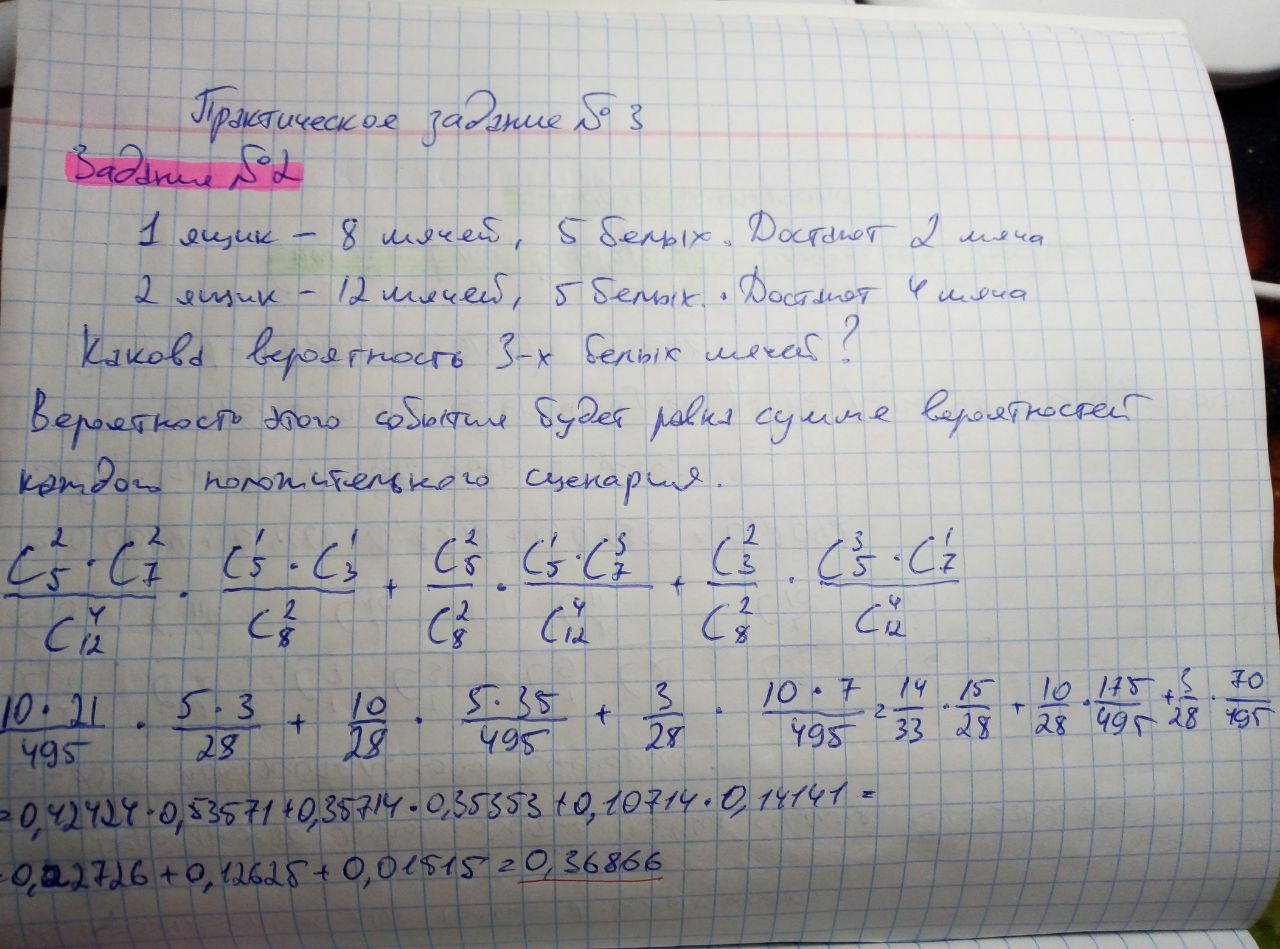 Практическое задание № 3
Задание № 2
1 ящик – 8 мячей, 5 белых. Достают 2 мяча
2 ящик – 12 мячей, 5 белых. Достают 4 мяча
Какова вероятность 3-х белых мячей?
Вероятность этого события будет равна сумме вероятностей
каждого положительного сценария.
C₅² · C₇² / C₁₂⁴ · C₅¹ · C₃¹ / C₈² + C₅² / C₈² · C₅¹ · C₇³ / C₁₂⁴ + C₃² / C₈² · C₅³ · C₇¹ / C₁₂⁴
10 · 21 / 495 · 5 · 3 / 28 + 10 / 28 · 5 · 35 / 495 + 3 / 28 · 10 · 7 / 495 = 14 / 33 · 15 / 28 + 10 / 28 · 175 / 495 + 3 / 28 · 70 / 495
= 0,42424 · 0,53571 + 0,35714 · 0,35353 + 0,10714 · 0,14141 =
= 0,22726 + 0,12625 + 0,01515 = 0,36866